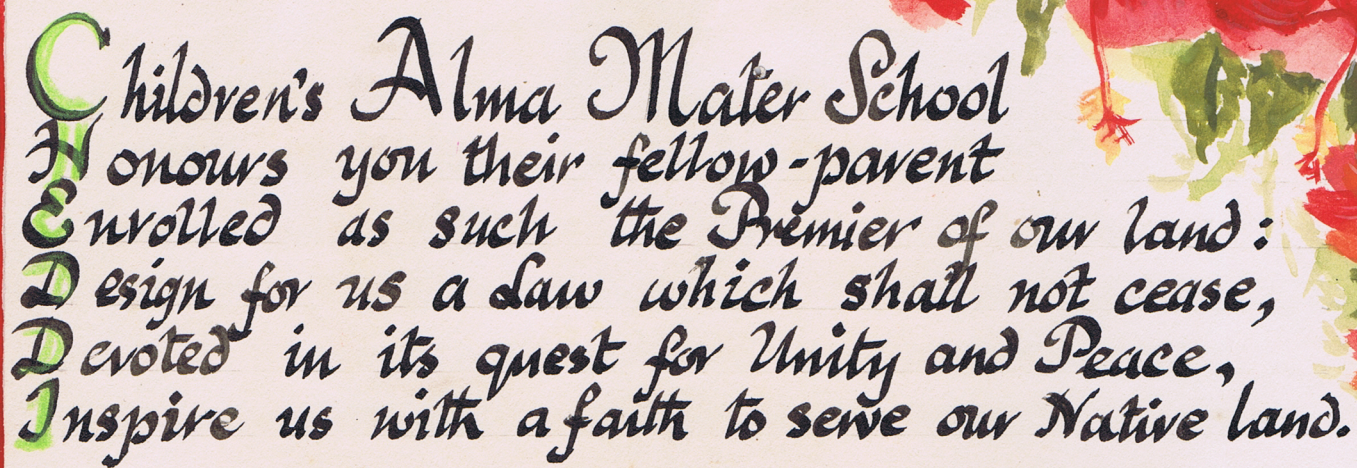 Children's Alma Mater School
Honours you their fellow-parent
Enrolled as such the Premier of our land:
Design for us a Law which shall not cease,
Devoted in its quest for Unity and Peace,
Inspire us with a faith to serve our Native land.